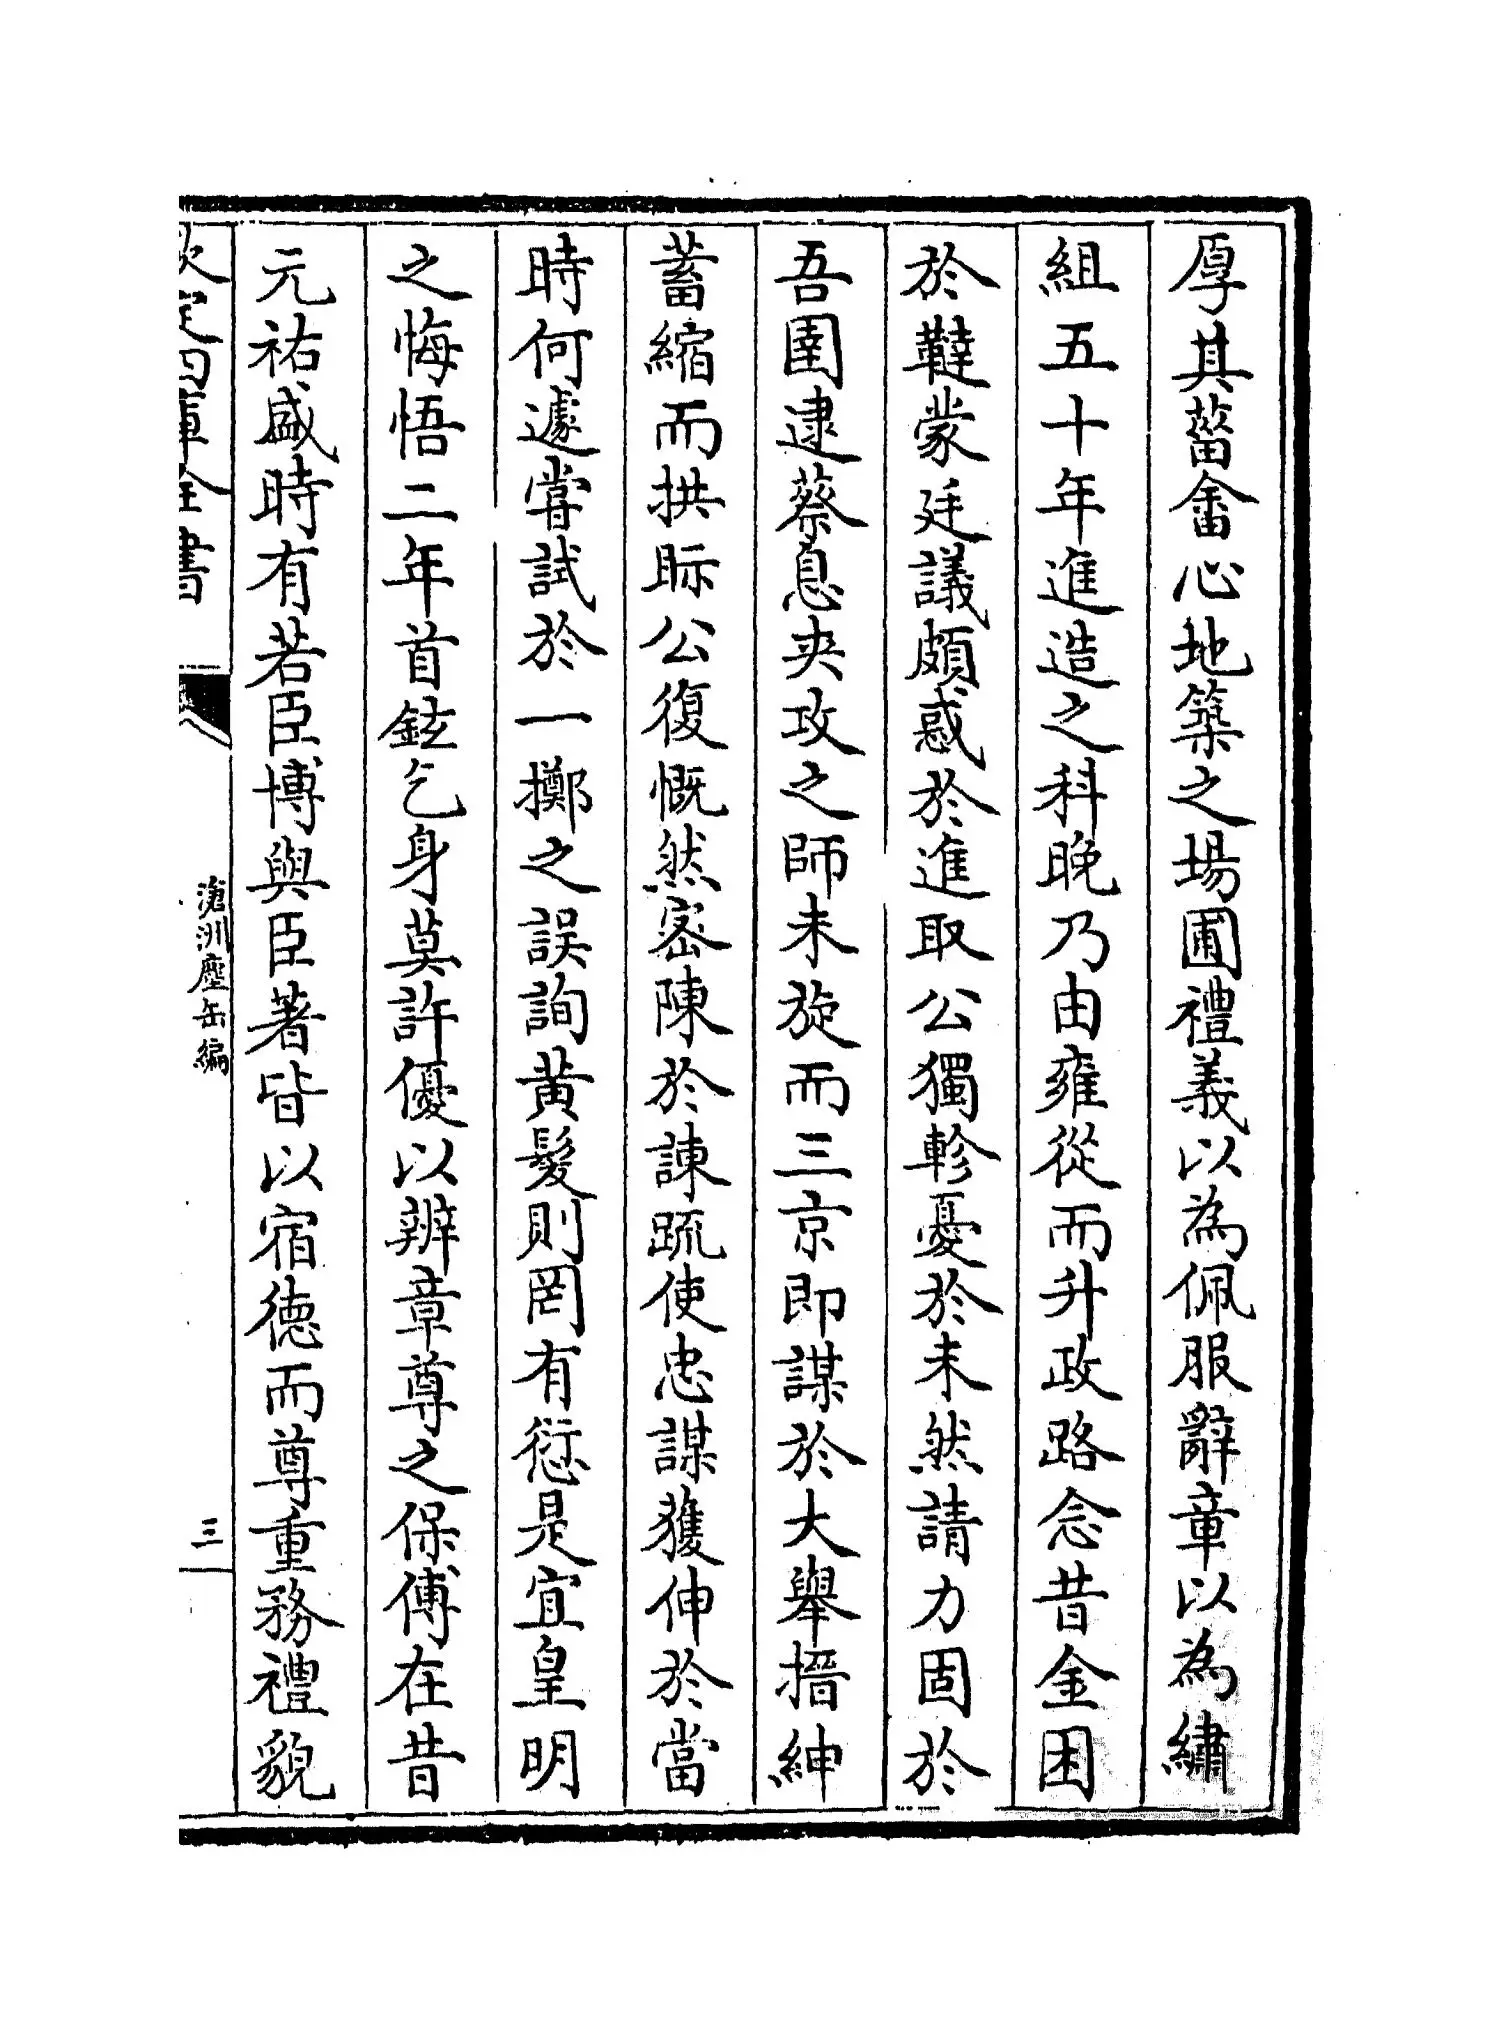 厚其菑畬心地築之場圃禮義以為佩服辭章以為繡
組五十年進造之科晚乃由雍從而升政路念昔金困
於韃蒙廷議頗惑於進取公獨軫憂於未然請力固於
吾圉逮蔡息夾攻之師未旋而三京即謀於大舉搢紳
蓄縮而拱眎公復慨然密陳於諫疏使忠謀獲伸於當
時何遽嘗試於一擲之誤詢黃髮則罔有愆是宜皇明
之悔悟二年首鉉乞身莫許優以辨章尊之保傅在昔
元祐盛時有若臣博與臣著皆以宿德而尊重務禮貌
欽定四庫全書
滄洲塵缶編
三